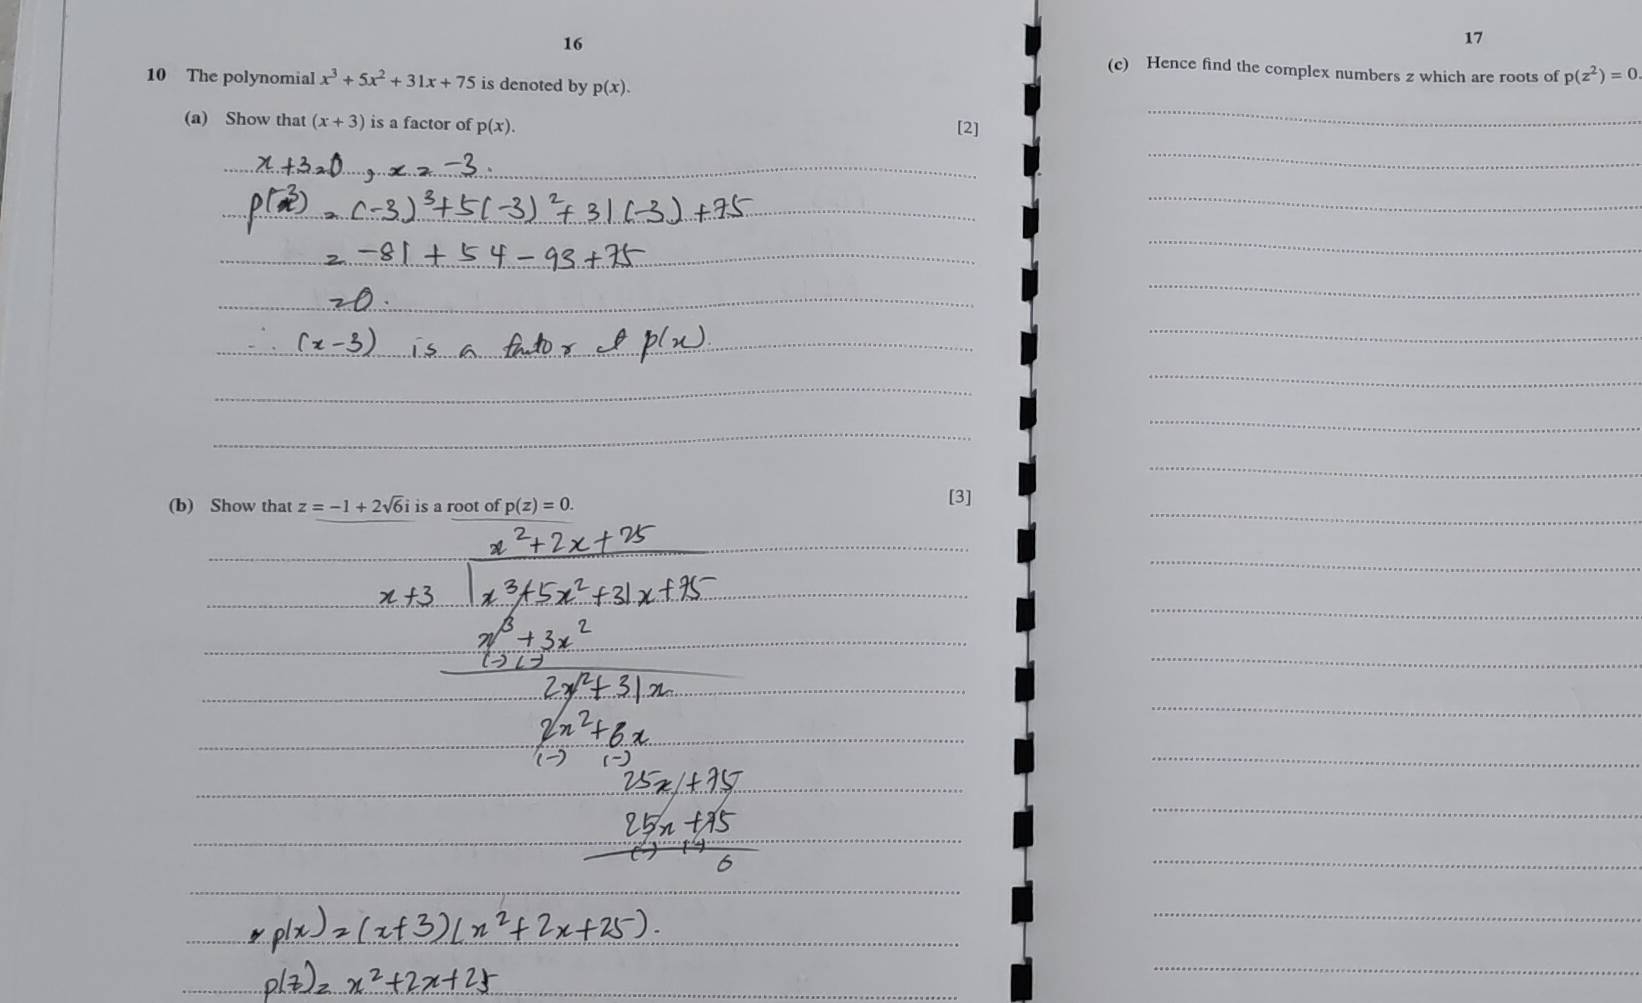 16
10 The polynomial x³ + 5x² + 31x + 75 is denoted by p(x).
(a) Show that (x + 3) is a factor of p(x).
[2]
x + 3 = 0, x = -3.
p(-3) = (-3)³ + 5(-3)² + 31(-3) + 75
= -81 + 54 - 93 + 75
= 0.
∴ (x - 3) is a factor of p(x).
(b) Show that z = −1 + 2√6i is a root of p(z) = 0.
[3]
x² + 2x + 25
x + 3 | x³ + 5x² + 31x + 75
x³ + 3x²
(-) (-)
2x² + 31x
2x² + 6x
(-) (-)
25x + 75
25x + 75
(-) (-)
0
p(x) = (x + 3)(x² + 2x + 25).
p(z) = x² + 2x + 25
17
(c) Hence find the complex numbers z which are roots of p(z²) = 0.